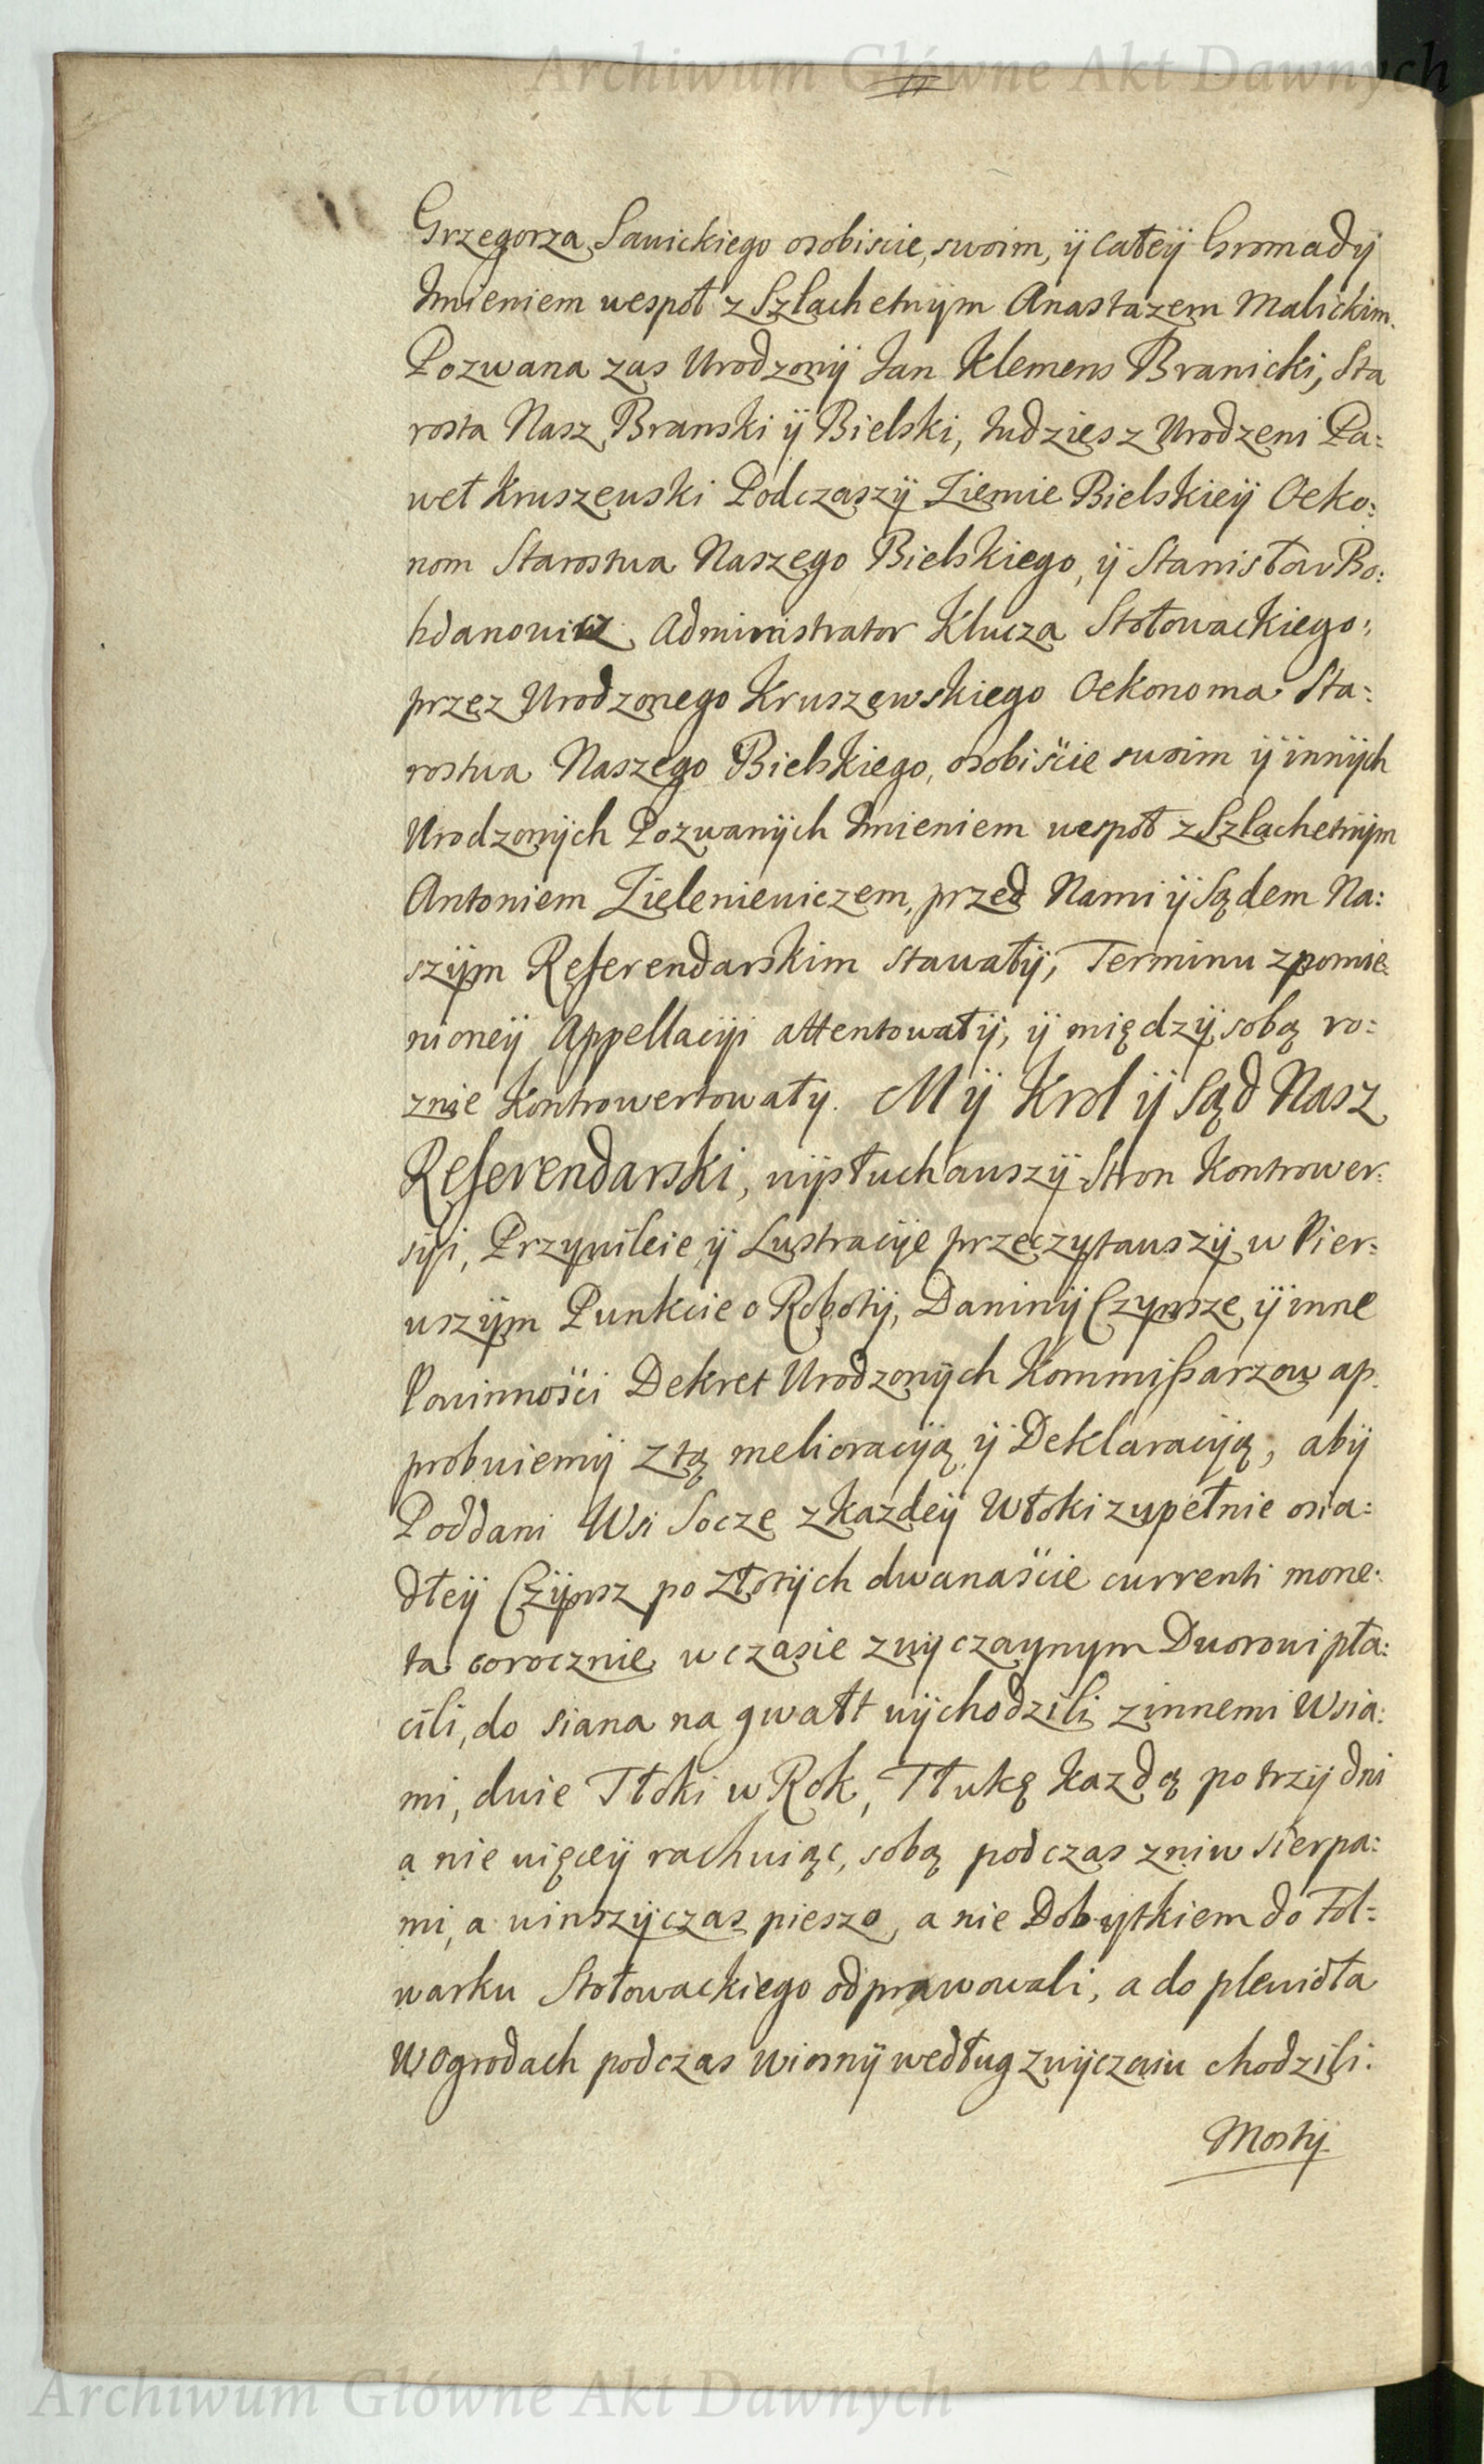 Archiwum Główne Akt Dawnych
Grzegorza Sawickiego osobiscie, swoim, ÿ całeÿ Gromadÿ
Imieniem wespoł z Szlachetnÿm Anastazem Malickim.
Pozwana zas Urodzonÿ Jan Klemens Branicki, Sta
rosta Nasz Branski ÿ Bielski, tudziesz Urodzeni Pa:
weł Kruszewski Podczaszÿ Ziemie Bielskieÿ Oeko:
nom Starostwa Naszego Bielskiego, ÿ Stanisław Bo:
hdanowicz Administrator Klucza Stołowackiego:,
przez Urodzonego Kruszewskiego Oekonoma Sta:
rostwa Naszego Bielskiego, osobiście swoim ÿ innÿch
Urodzonÿch Pozwanÿch Imieniem wespoł z Szlachetnÿm
Antoniem Zieleniewiczem, przed Nami ÿ Sądem Na:
szÿm Referendarskim stawałÿ, Terminu z pomie
nioneÿ Appellacÿi attentowałÿ, ÿ międzÿ sobą ro:
znie kontrowertowały. Mÿ Krol ÿ Sąd Nasz
Referendarski, wÿsłuchawszÿ Stron Kontrower:
sÿi, Przywileie ÿ Lustracÿe przeczytawszÿ w Pier:
wszÿm Punkcie o Robotÿ, Daninÿ Czynsze ÿ inne
Powinności Dekret Urodzonÿch Kommissarzow ap
probuiemÿ z tą melioracÿą ÿ Deklaracÿą, abÿ
Poddani Wsi Socze z kazdeÿ Włoki zupełnie osia:
dłeÿ Czÿnsz po złotÿch dwanaście currenti mone:
ta corocznie w czasie zwÿczaynym Dworowi pła:
cili, do siana na gwałt wÿchodzili z innemi Wsia:
mi, dwie Tłoki w Rok, Tłukę kazdą po trzÿ dni
a nie więceÿ rachuiąc, sobą podczas zniw sierpa:
mi, a w inszÿ czas pieszo, a nie Dobytkiem do Fol:
warku Stołowackiego odprawowali, a do plewidła
W Ogrodach podczas Wiosnÿ według zwÿczaiu chodzili.
Mostÿ
Archiwum Główne Akt Dawnych